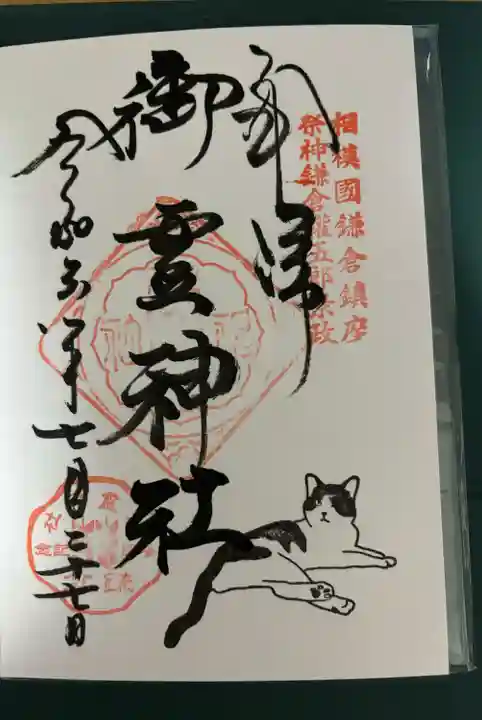 相模國鎌倉鎮座
祭神鎌倉権五郎景政
奉拝
御霊神社
七月二十七日